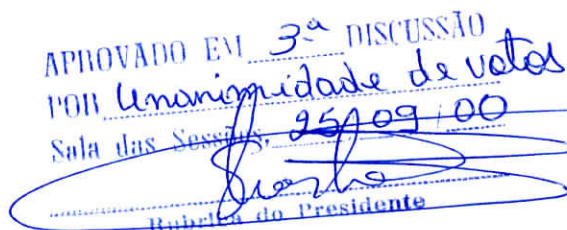 APROVADO EM 3ª DISCUSSÃO
POR Unanimidade de votos
Sala das Sessões, 25/09/00
Rubrica do Presidente